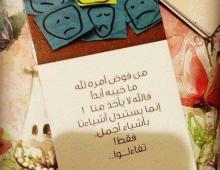 من فوض أمره لله
ما خيبه أبدا
فالله لا يأخذ منا !
إنما يستبدل أشياءنا
بأشياء أجمل.
فقط!
تفاءلــوا..